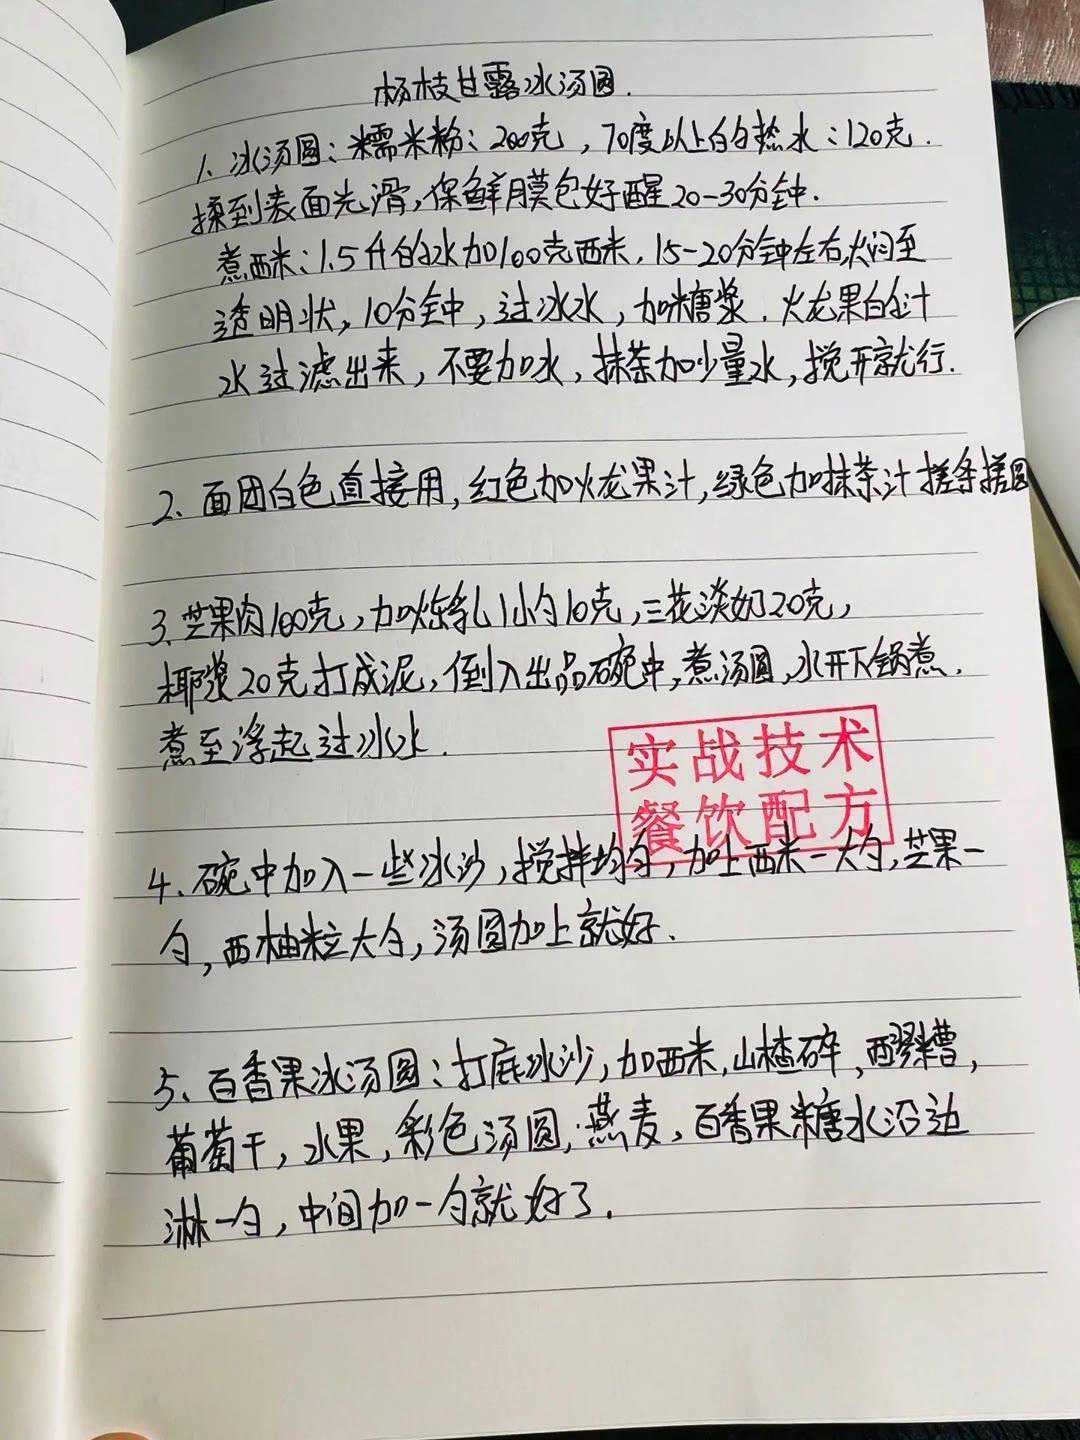 杨枝甘露冰汤圆.
1、冰汤圆:糯米粉:200克,70度以上的热水:120克.
揉到表面光滑,保鲜膜包好醒20-30分钟.
煮西米:1.5升的水加100克西米,15-20分钟左右,火闷至
透明状,10分钟,过冰水,加糖浆.火龙果的汁
水过滤出来,不要加水,抹茶加少量水,搅开就行.
2、面团白色直接用,红色加火龙果汁,绿色加抹茶汁搓条搓圆
3、芒果肉100克,加炼乳1小勺10克,三花淡奶20克,
椰浆20克打成泥,倒入出品碗中,煮汤圆,水开下锅煮.
煮至浮起过冰水.
实战技术
餐饮配方
4、碗中加入一些冰沙,搅拌均匀,加上西米一大勺,芒果一
勺,西柚粒大勺,汤圆加上就好、
5、百香果冰汤圆:打底冰沙,加西米,山楂碎、醪糟,
葡萄干,水果,彩色汤圆,燕麦,百香果糖水沿边
淋一勺,中间加一勺就好了.